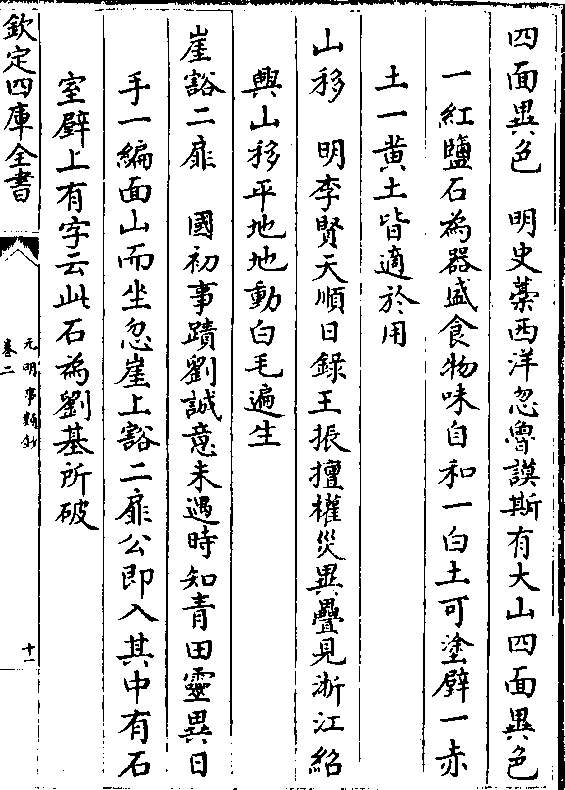 四面異色　明史藁西洋忽魯謨斯有大山四面異色
一紅鹽石為器盛食物味自和一白土可塗壁一赤
土一黄土皆適於用
山移　明李賢天順日錄王振擅權災異疊見浙江紹
興山移平地地動白毛遍生
崖豁二扉　國初事蹟劉誠意未遇時知青田靈異日
手一編面山而坐忽崖上豁二扉公即入其中有石
室壁上有字云此石為劉基所破
欽定四庫全書
元明事類鈔
卷二
十一